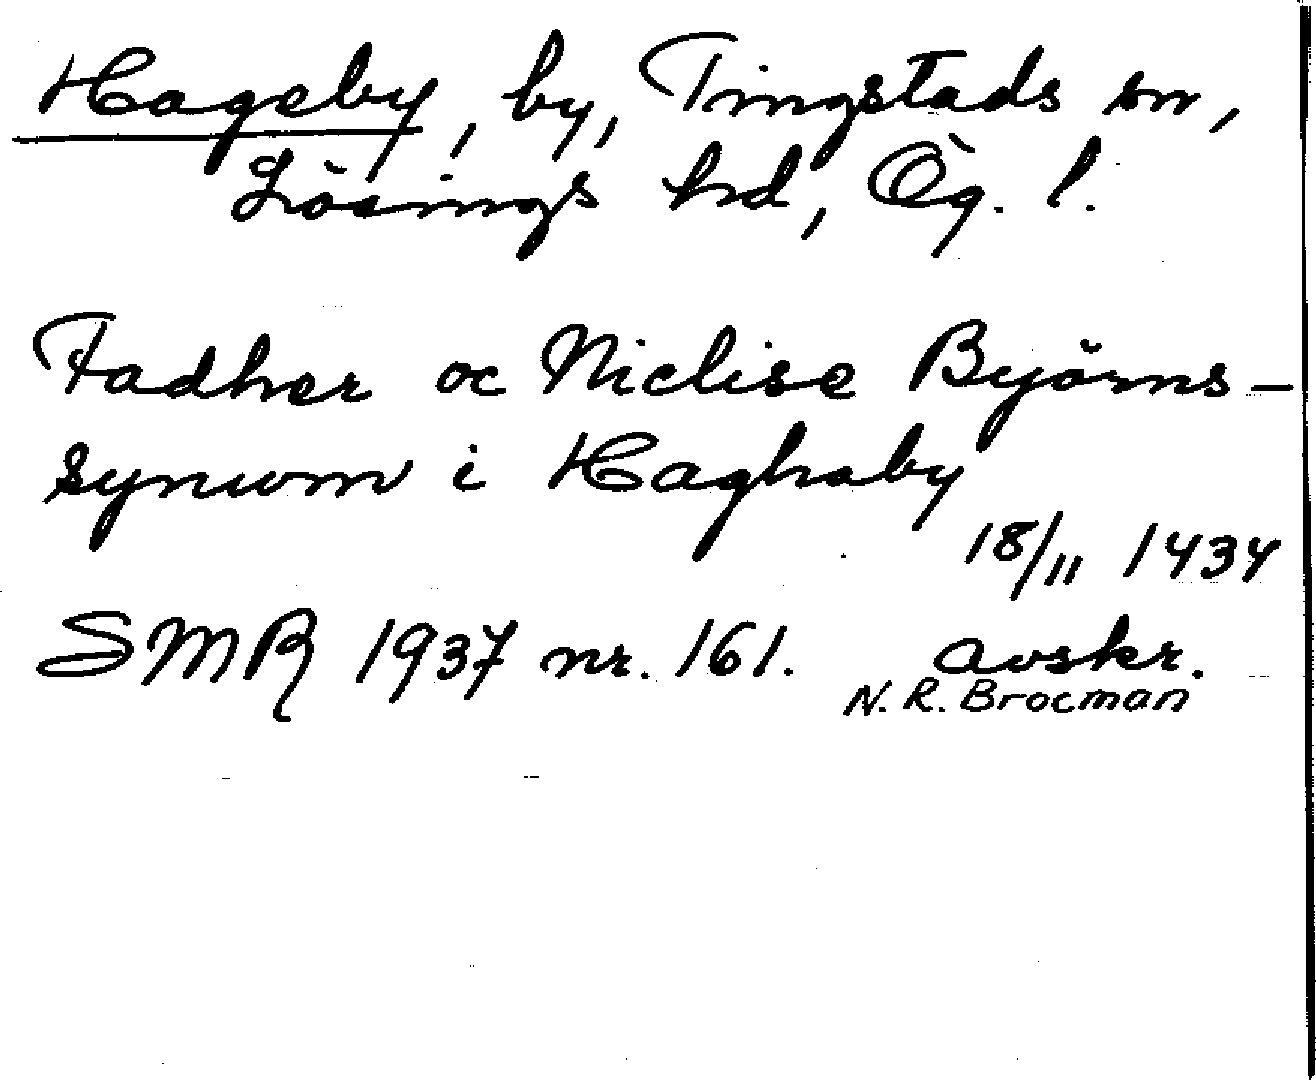 Hageby, by, Tingstads sn,
Lösings hd, Ög. l.
Fadher oc Niclise Byörns-
synwm i Haghaby
18/11 1434
SMR 1937 nr. 161. avskr.
N. R. Brocman